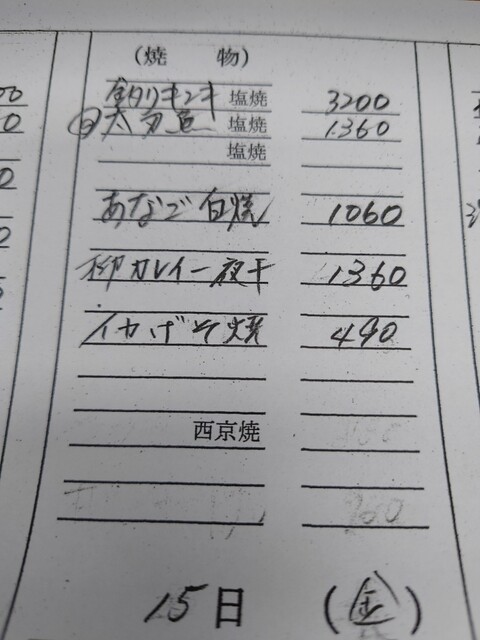 (焼 物)
釣りキンキ 塩焼 3200
太刀魚 塩焼 1360
塩焼
あなご白焼 1060
柳カレイ一夜干 1360
イカげそ焼 490
西京焼
15日 (金)